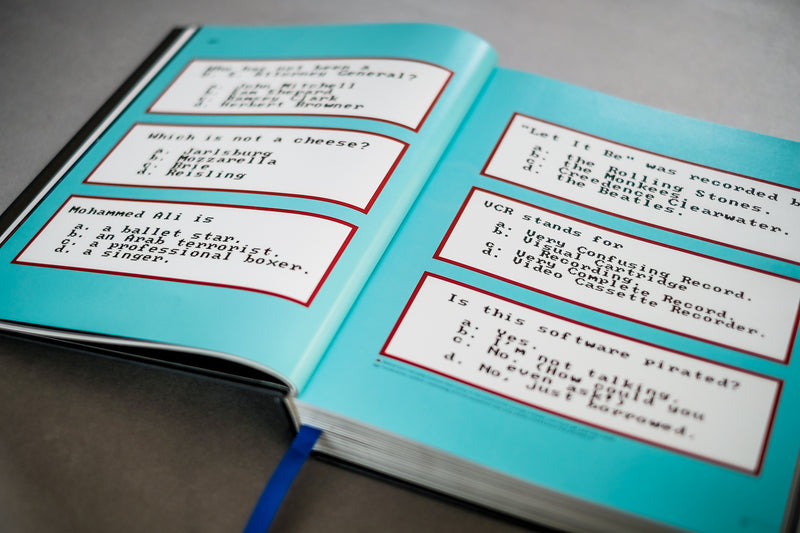 Who has not been a
U. S. Attorney General?
a. John Mitchell
b. Sam Shepard
c. Ramsey Clark
d. Herbert Browner
Which is not a cheese?
a. Jarlsburg
b. Mozzarella
c. Brie
d. Reisling
Mohammed Ali is
a. a ballet star.
b. an Arab terrorist.
c. a professional boxer.
d. a singer.
"Let It Be" was recorded b
a. the Rolling Stones.
b. the Monkees.
c. Creedence Clearwater.
d. the Beatles.
VCR stands for
a. Very Confusing Record.
b. Visual Cartridge
Recording.
c. Very Complete Record.
d. Video Cassette Recorder.
Is this software pirated?
a. Yes.
b. I'm not talking.
c. No. (How could you
even ask?)
d. No, just borrowed.